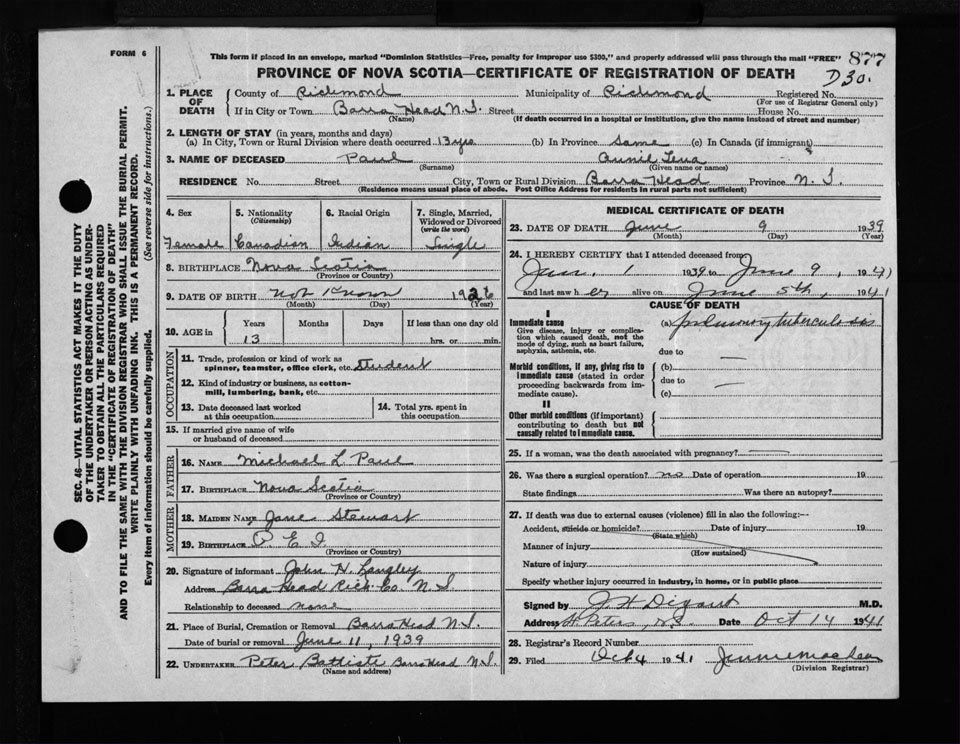 FORM 6
This form if placed in an envelope, marked "Dominion Statistics—Free, penalty for improper use $300," and properly addressed will pass through the mail "FREE" 877
PROVINCE OF NOVA SCOTIA—CERTIFICATE OF REGISTRATION OF DEATH D30.
1. PLACE OF DEATH
County of Richmond Municipality of Richmond Registered No.
(For use of Registrar General only)
If in City or Town Barra Head N.S. Street House No.
(Name) (If death occurred in a hospital or institution, give the name instead of street and number)
2. LENGTH OF STAY (in years, months and days)
(a) In City, Town or Rural Division where death occurred 13 yrs (b) In Province Same (c) In Canada (if immigrant)
3. NAME OF DECEASED Paul Annie Lena
(Surname) (Given name or names)
RESIDENCE No. Street City, Town or Rural Division Barra Head Province N.S.
(Residence means usual place of abode. Post Office Address for residents in rural parts not sufficient)
SEC. 46—VITAL STATISTICS ACT MAKES IT THE DUTY
OF THE UNDERTAKER OR PERSON ACTING AS UNDER-
TAKER TO OBTAIN ALL THE PARTICULARS REQUIRED
IN THE "CERTIFICATE OF REGISTRATION OF DEATH"
AND TO FILE THE SAME WITH THE DIVISION REGISTRAR WHO SHALL ISSUE THE BURIAL PERMIT.
WRITE PLAINLY WITH UNFADING INK. THIS IS A PERMANENT RECORD.
Every item of information should be carefully supplied. (See reverse side for instructions.)
4. Sex
Female
5. Nationality
(Citizenship)
Canadian
6. Racial Origin
Indian
7. Single, Married,
Widowed or Divorced
(write the word)
Single
8. BIRTHPLACE Nova Scotia
(Province or Country)
9. DATE OF BIRTH not known 1926
(Month) (Day) (Year)
10. AGE in
Years Months Days If less than one day old
13 hrs. or min.
OCCUPATION
11. Trade, profession or kind of work as
spinner, teamster, office clerk, etc. Student
12. Kind of industry or business, as cotton-
mill, lumbering, bank, etc.
13. Date deceased last worked
at this occupation
14. Total yrs. spent in
this occupation
15. If married give name of wife
or husband of deceased
FATHER
16. NAME Michael L. Paul
17. BIRTHPLACE Nova Scotia
(Province or Country)
MOTHER
18. MAIDEN NAME Jane Stewart
19. BIRTHPLACE P. E. I.
(Province or Country)
20. Signature of informant John H. Langley
Address Barra Head Rich. Co. N.S.
Relationship to deceased none
21. Place of Burial, Cremation or Removal Barra Head N.S.
Date of burial or removal June 11 1939
22. UNDERTAKER Peter Battiste Barra Head N.S.
(Name and address)
MEDICAL CERTIFICATE OF DEATH
23. DATE OF DEATH June 9 1939
(Month) (Day) (Year)
24. I HEREBY CERTIFY that I attended deceased from
Jan. 1 1939 to June 9, 1941
and last saw her alive on June 5th, 1941
CAUSE OF DEATH
I
Immediate cause
Give disease, injury or complica-
tion which caused death, not the
mode of dying, such as heart failure,
asphyxia, asthenia, etc.
(a) pulmonary tuberculosis
due to —
Morbid conditions, if any, giving rise to
immediate cause (stated in order
proceeding backwards from im-
mediate cause).
(b)
due to —
(c)
II
Other morbid conditions (if important)
contributing to death but not
causally related to immediate cause.
25. If a woman, was the death associated with pregnancy? —
26. Was there a surgical operation? no Date of operation 19
State findings Was there an autopsy?
27. If death was due to external causes (violence) fill in also the following:—
Accident, suicide or homicide? Date of injury 19
(State which)
Manner of injury
(How sustained)
Nature of injury
Specify whether injury occurred in industry, in home, or in public place
Signed by M.D.
Address St. Peters, N.S. Date Oct 14 1941
28. Registrar's Record Number
29. Filed Oct 4 1941
(Division Registrar)